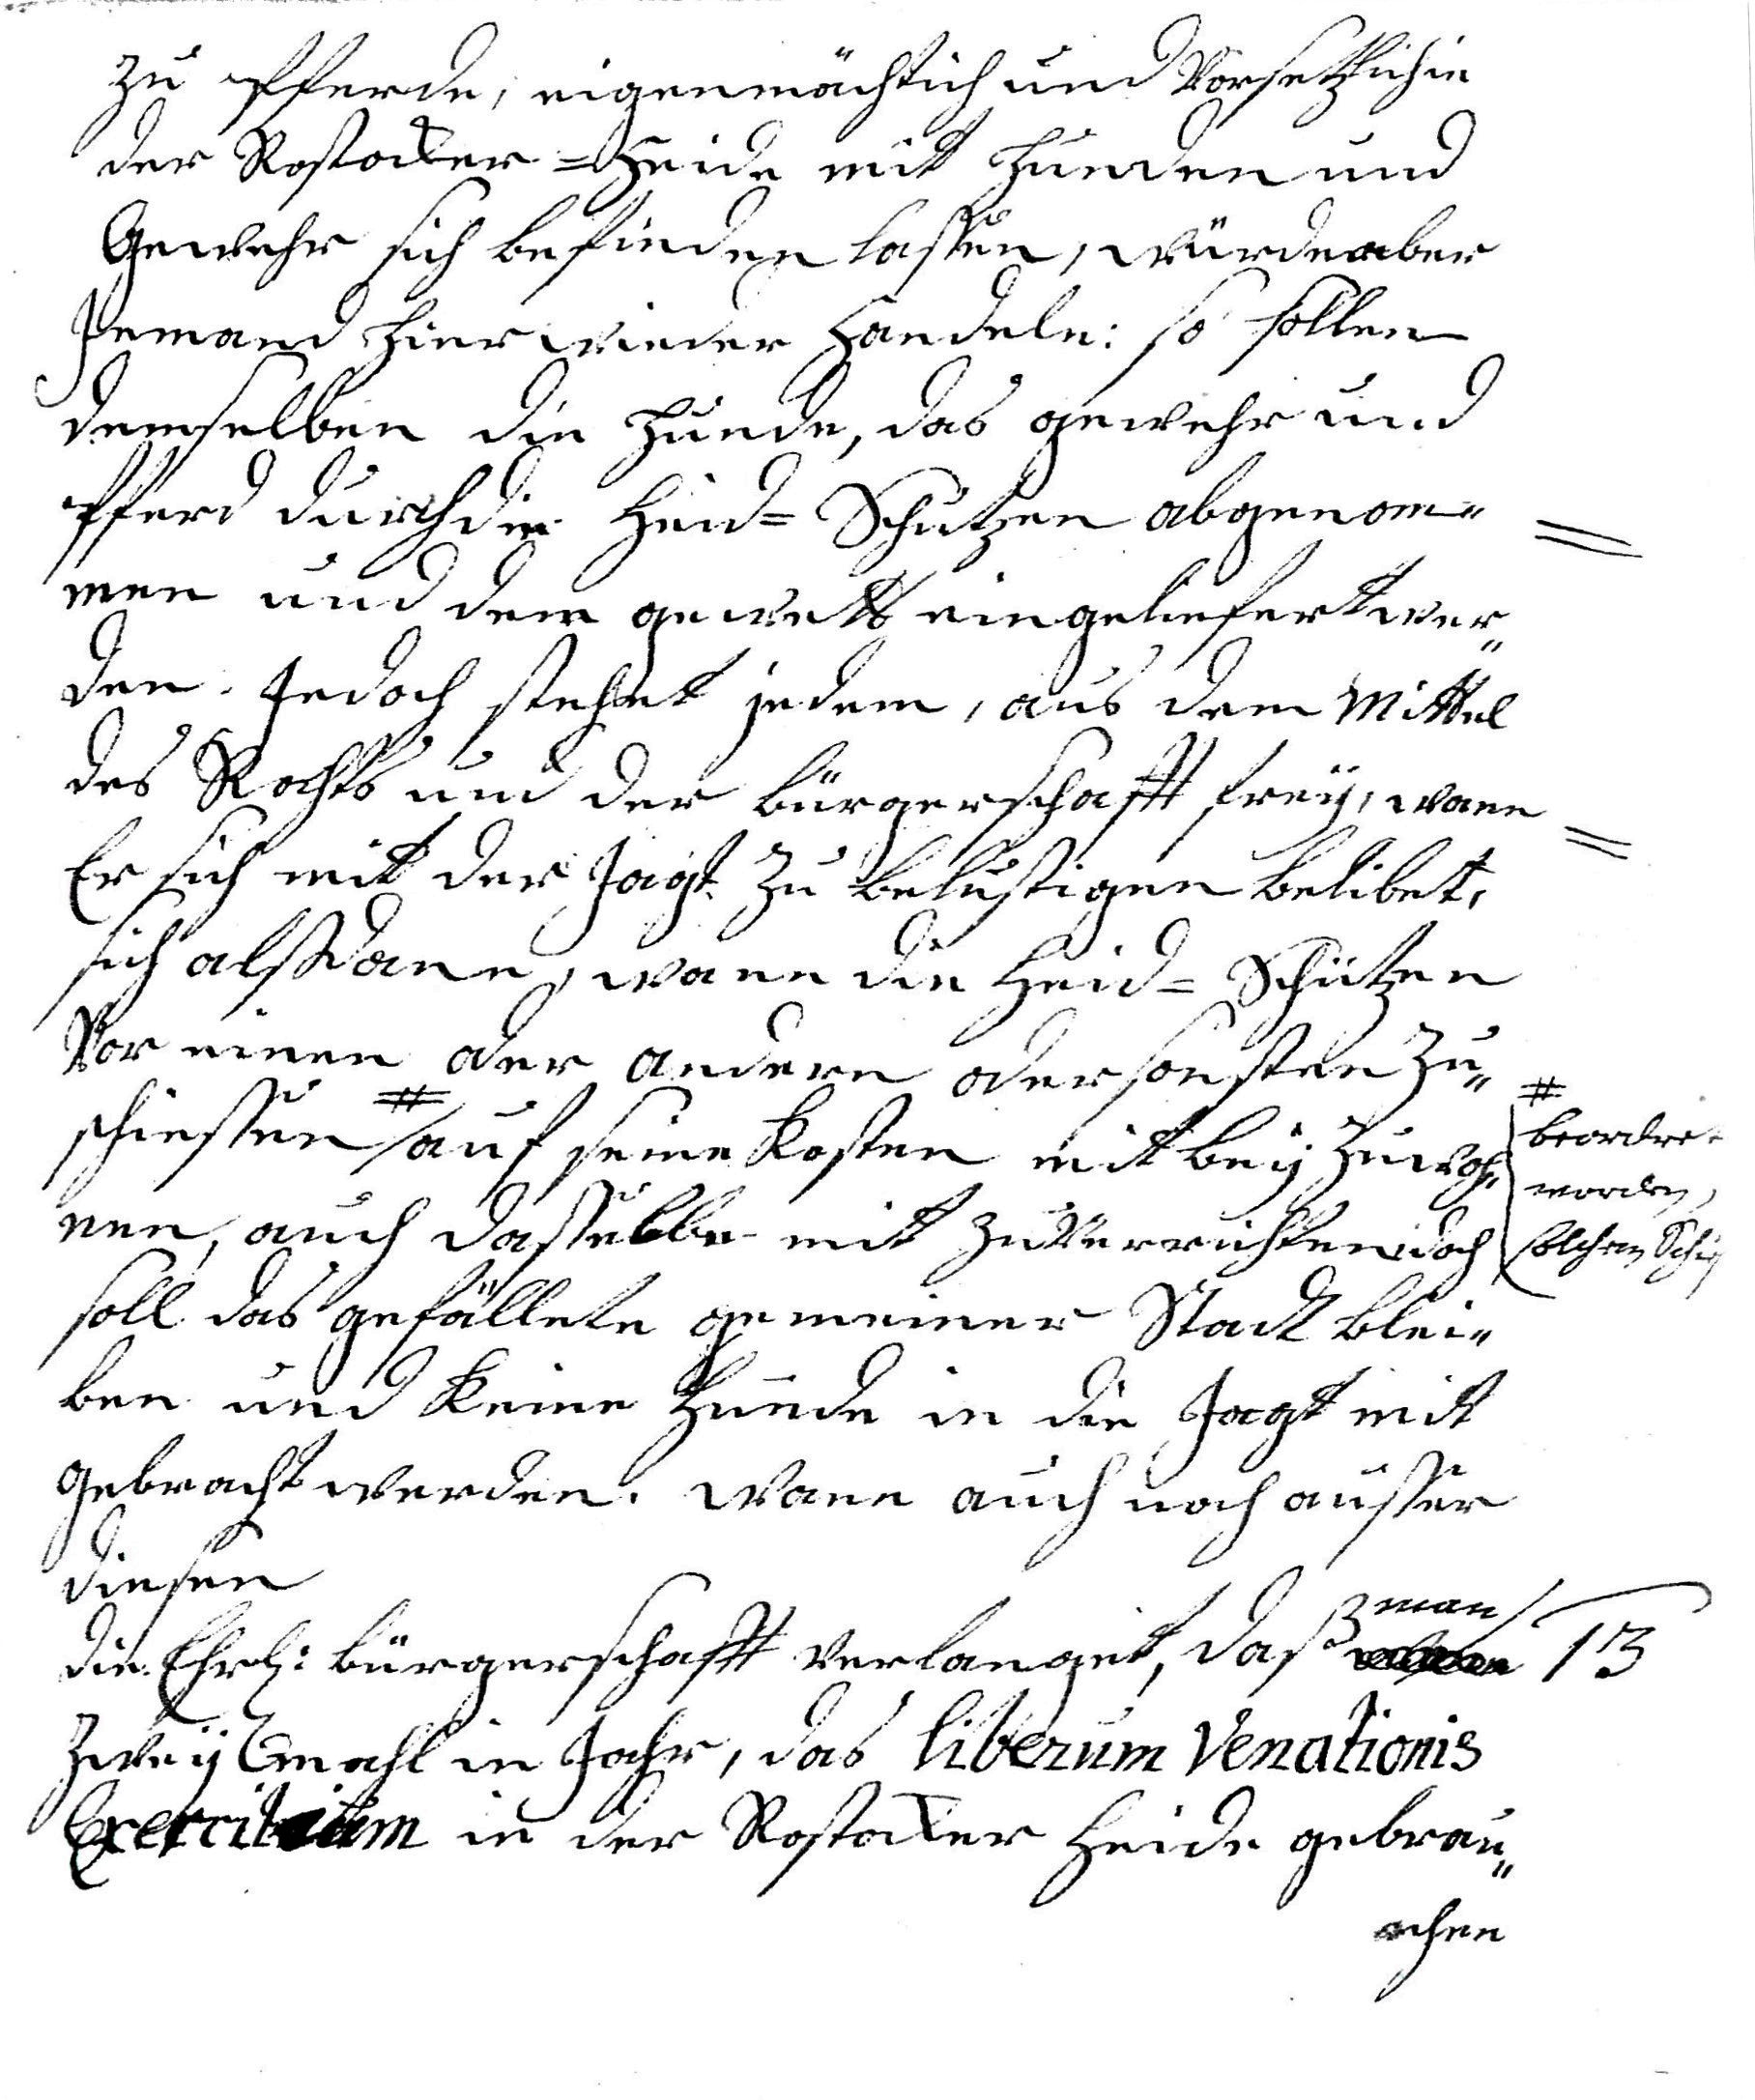 zu Pferde, eigenmächtich und Vorsetzlich in
der Rostocker=Heide mit Hunden und
Gewehr sich befinden lassen, würde aber
Jemand hier wieder handeln: so sollen
demselben die Hunde, das gewehr und
Pferd durch die Heid= Schützen abgenom=
men und dem gewett eingeliefert wer=
den. Jedoch stehet jedem, aus dem Mittel
des Rahts und der bürgerschafft frey, wann
Er sich mit der Jagt zu belustigen belibet,
sich alßdann, wann die Heid= Schützen
Vor einen oder andern oder sonsten zu=
schiessen # auf seine Kosten mit bey zu woh=
nen, auch dasselbe mit zu verrichten, doch
# beordret
worden,
solchen
soll das gefällete gemeiner Stadt blei=
ben und keine Hunde in die Jagt mit
gebracht werden. Wann auch noch ausser
diesen
die Ehrl: bürgerschafft verlanget, daß man 13
zwey mahl in Jahr, das liberum Venationis
Exercitium in der Rostocker Heide gebrau=
chen